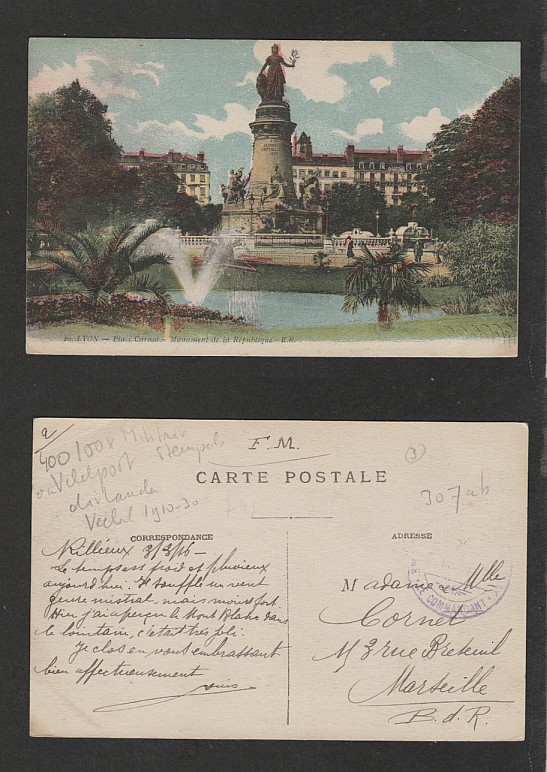 20. LYON — Place Carnot — Monument de la République - E.R.
a
400/100x Militair
Stempels
Veldpost
1910-30
F. M.
3
CARTE POSTALE
307ab
CORRESPONDANCE
ADRESSE
Rillieux 3/3/16 -
Le temps est froid et pluvieux
aujourd'hui. Il souffle un vent
genre mistral mais moins fort.
Hier j'ai aperçu le Mont Blanc dans
le lointain, c'était très joli.
Je clos en vous embrassant
bien affectueusement
Louis
COMMANDANT
Madame & Mlle
Cornet
113 rue Breteuil
Marseille
B. d. R.